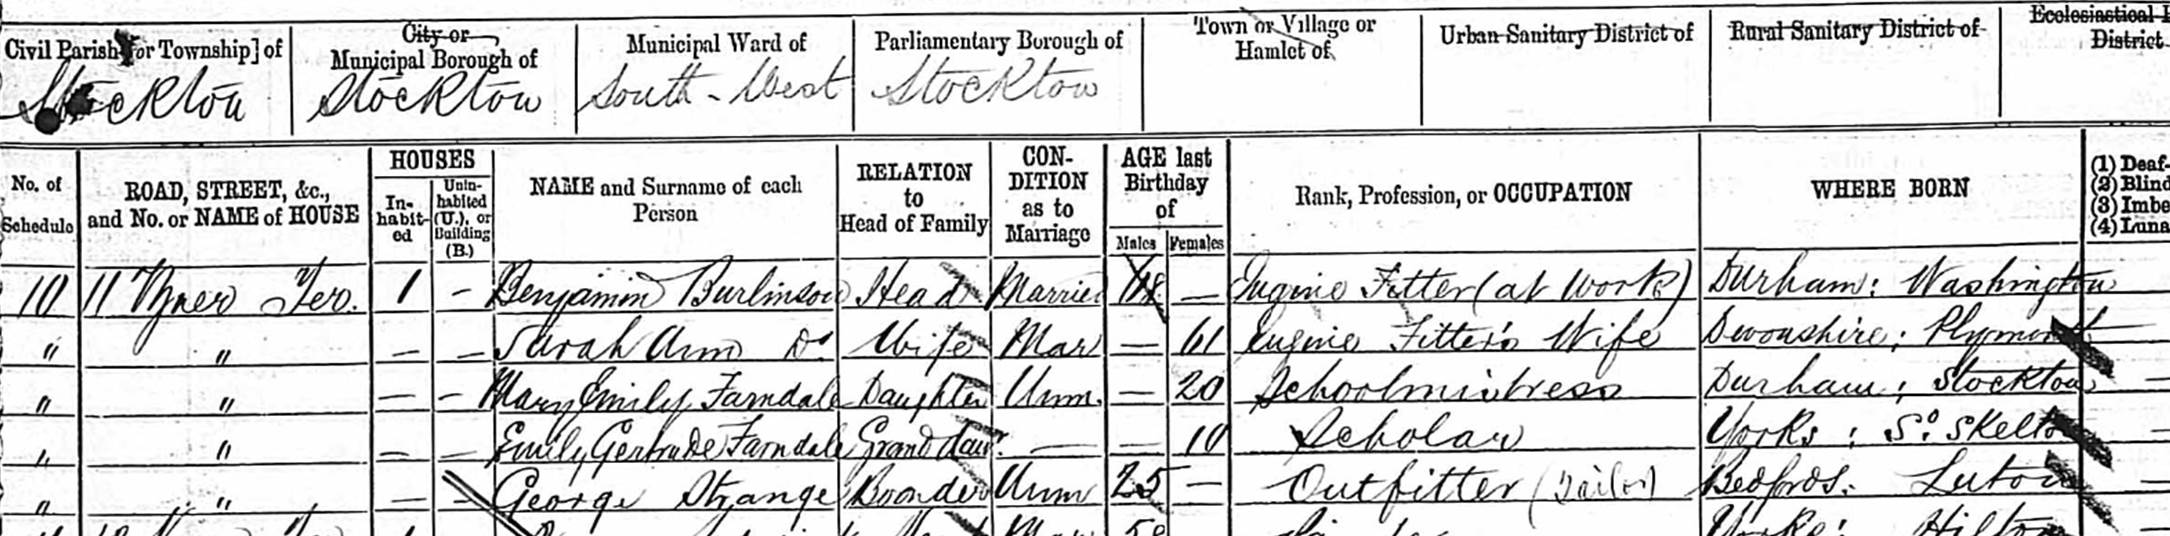 Civil Parish [or Township] of
Stockton
City or
Municipal Borough of
Stockton
Municipal Ward of
South-West
Parliamentary Borough of
Stockton
Town or Village or
Hamlet of
Urban Sanitary District of
Rural Sanitary District of
Ecclesiastical
District
No. of
Schedule
ROAD, STREET, &c.,
and No. or NAME of HOUSE
HOUSES
In-
habit-
ed
Unin-
habited
(U.), or
Building
(B.)
NAME and Surname of each
Person
RELATION
to
Head of Family
CON-
DITION
as to
Marriage
AGE last
Birthday
of
Males Females
Rank, Profession, or OCCUPATION
WHERE BORN
(1) Deaf-
(2) Blind
(3) Imbe
(4) Luna
10 11 Vyner Ter. 1 – Benjamin Burlinson Head Married – Engine Fitter (at Work) Durham: Washington
" " – – Sarah Ann Do. Wife Mar – 61 Engine Fitter's Wife Devonshire; Plymouth
" " – – Mary Emily Farndale Daughter Unm. – 20 Schoolmistress Durham; Stockton
" " – – Emily Gertrude Farndale Grand daur. – – 10 Scholar Yorks: So. Skelton
" " – – George Strange Boarder Unm 25 – Outfitter (Tailor) Bedfords: Luton
Mar 58 Yorks: Hilton